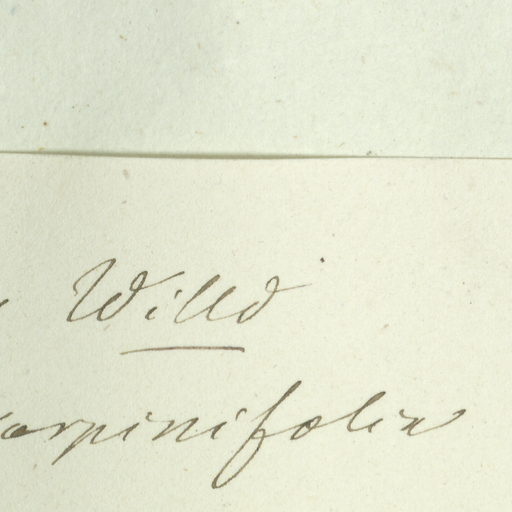 Willd
carpinifolia